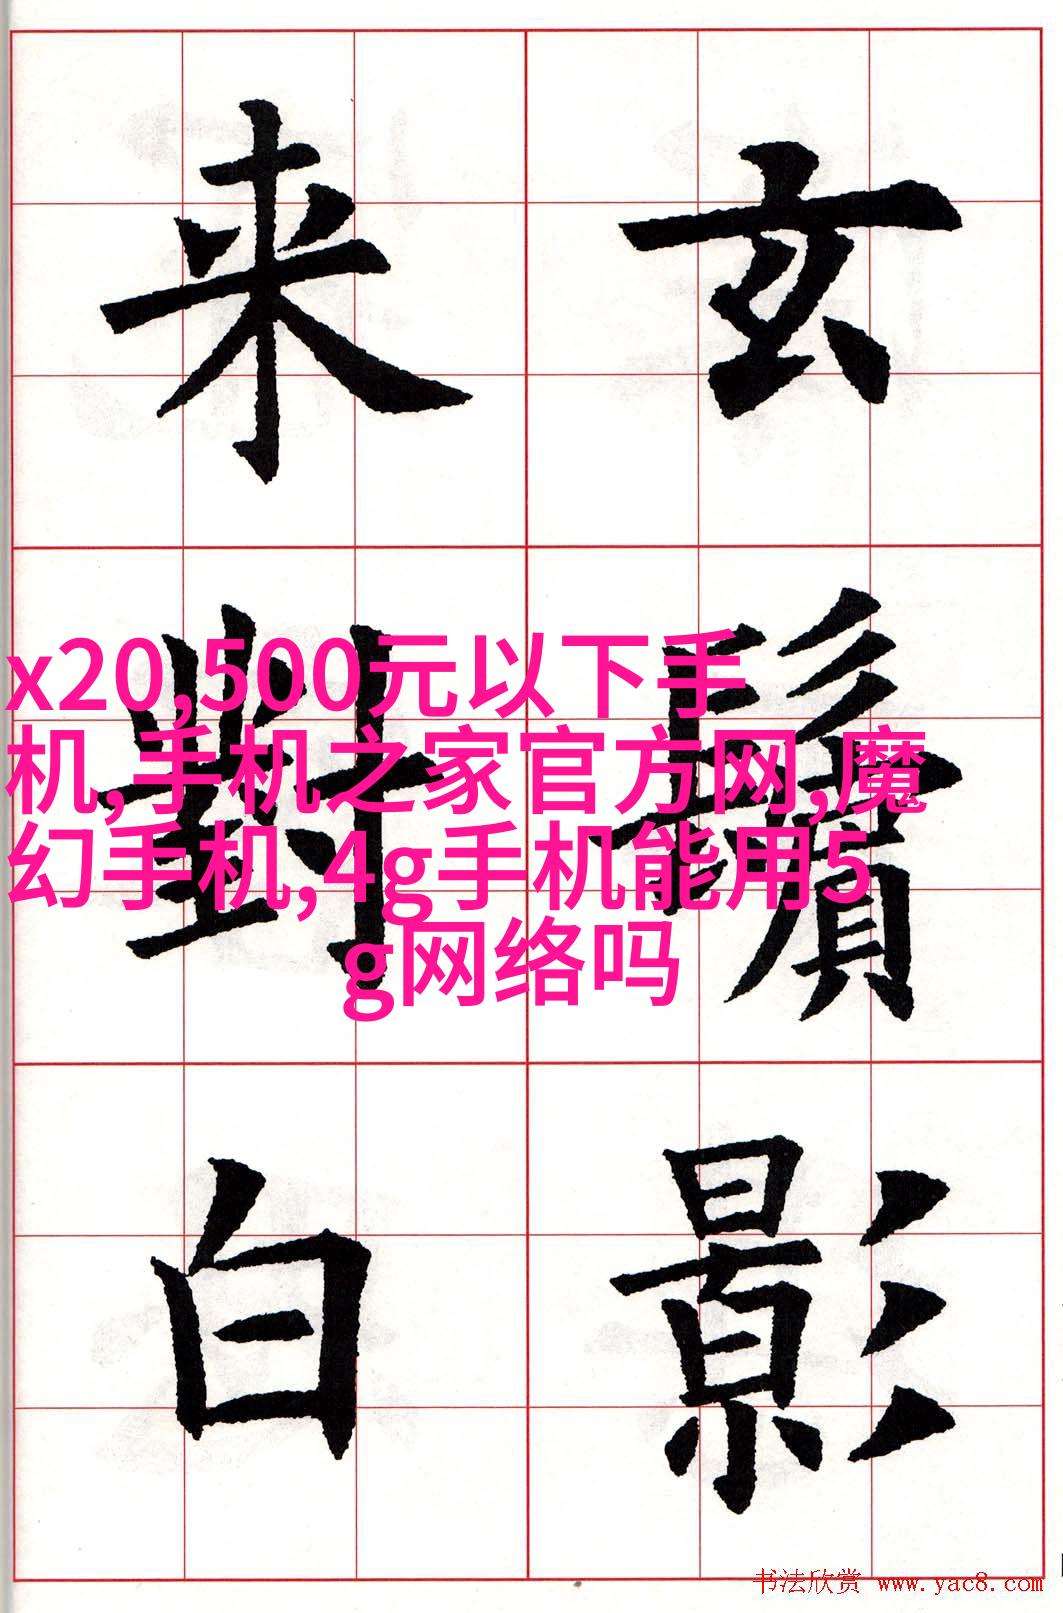 玄鬢影
来對白
x20,500元以下手
机,手机之家官方网,魔
幻手机,4g手机能用5
g网络吗
书法欣赏 www.yac8.com